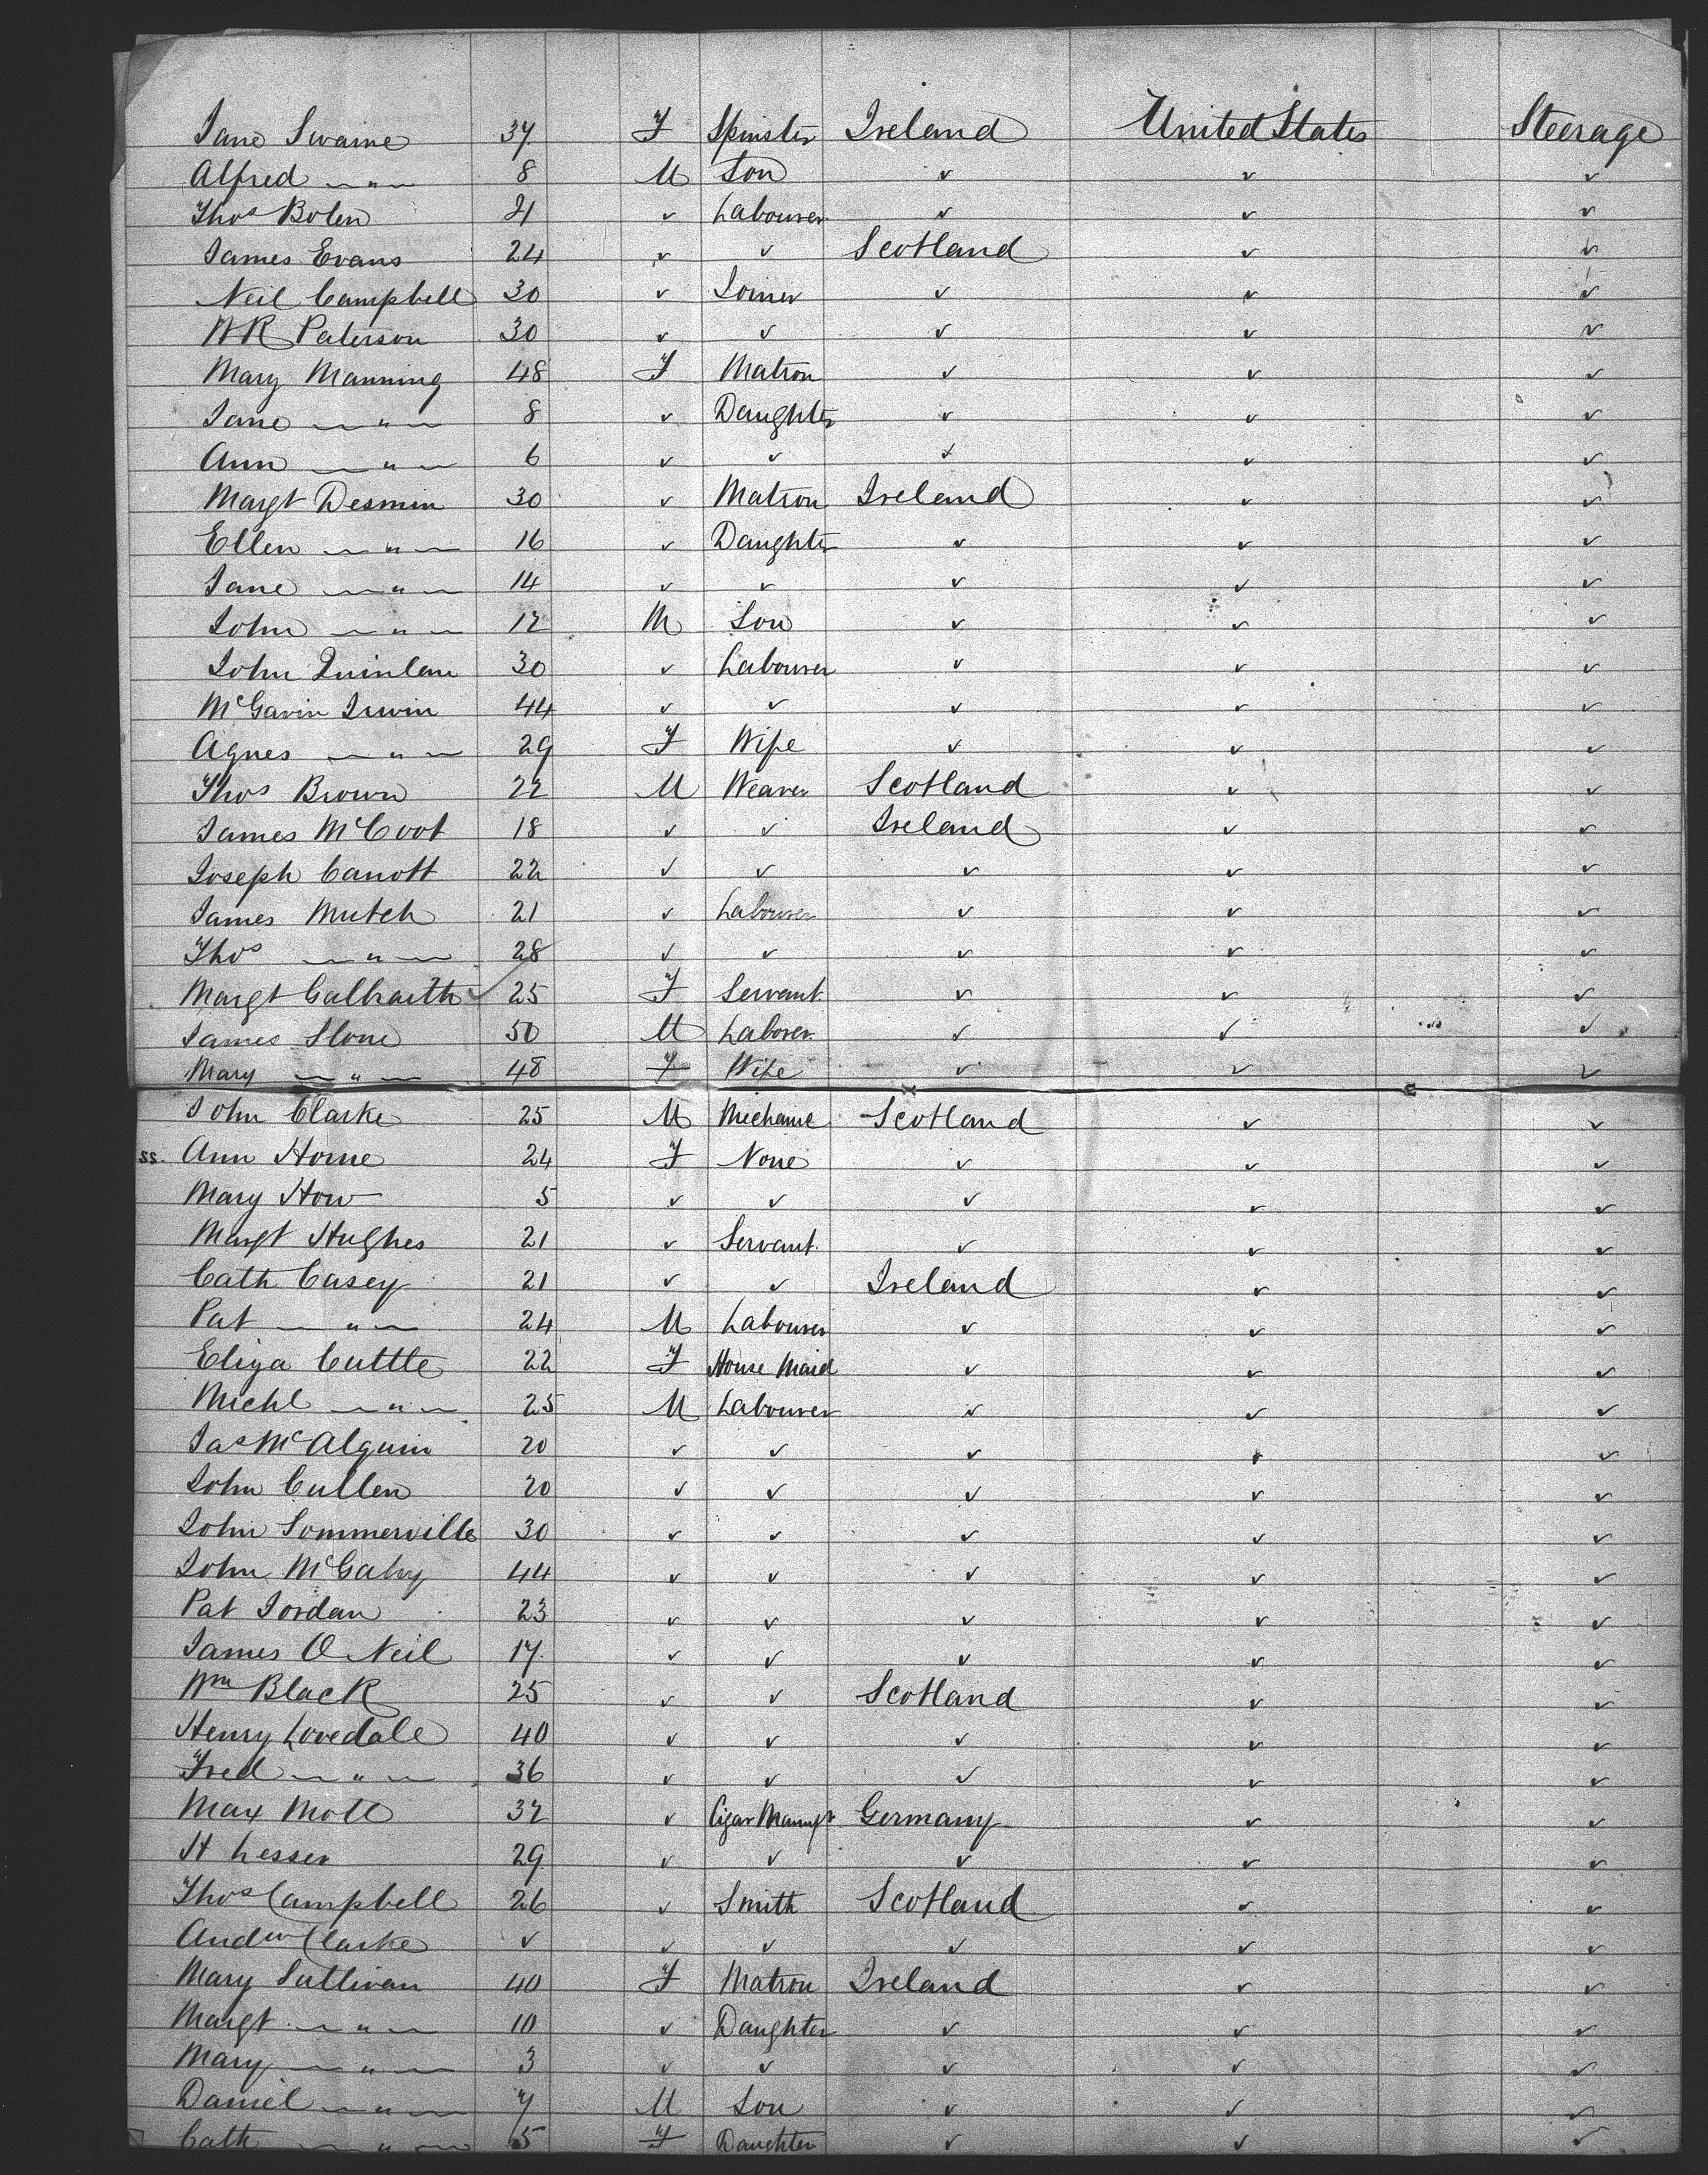 Jane Swaine 37 F Spinster Ireland United States Steerage
Alfred " 8 M Son ✓ ✓ ✓
Thos Bolen 21 ✓ Labourer ✓ ✓ ✓
James Evans 24 ✓ ✓ Scotland ✓ ✓
Neil Campbell 30 ✓ Joiner ✓ ✓ ✓
WR Paterson 30 ✓ ✓ ✓ ✓ ✓
Mary Manning 48 F Matron ✓ ✓ ✓
Jane " 8 ✓ Daughter ✓ ✓ ✓
Ann " 6 ✓ ✓ ✓ ✓ ✓
Margt Desmin 30 ✓ Matron Ireland ✓ ✓
Ellen " 16 ✓ Daughter ✓ ✓ ✓
Jane " 14 ✓ ✓ ✓ ✓ ✓
John " 12 M Son ✓ ✓ ✓
John Quinlan 30 ✓ Labourer ✓ ✓ ✓
McGavin Irwin 44 ✓ ✓ ✓ ✓ ✓
Agnes " 29 F Wife ✓ ✓ ✓
Thos Brown 22 M Weaver Scotland ✓ ✓
James McCoot 18 ✓ ✓ Ireland ✓ ✓
Joseph Canott 22 ✓ ✓ ✓ ✓ ✓
James Mutch 21 ✓ Labourer ✓ ✓ ✓
Thos " 28 ✓ ✓ ✓ ✓ ✓
Margt Galbraith 25 F Servant ✓ ✓ ✓
James Slone 50 M Laborer ✓ ✓ ✓
Mary " 48 F Wife ✓ ✓ ✓
John Clarke 25 M Mechanic Scotland ✓ ✓
ss. Ann Horne 24 F None ✓ ✓ ✓
Mary How 5 ✓ ✓ ✓ ✓ ✓
Margt Hughes 21 ✓ Servant ✓ ✓ ✓
Cath Casey 21 ✓ ✓ Ireland ✓ ✓
Pat " 24 M Labourer ✓ ✓ ✓
Eliza Cuttle 22 F House Maid ✓ ✓ ✓
Michl " 25 M Labourer ✓ ✓ ✓
Jas McAlguin 20 ✓ ✓ ✓ ✓ ✓
John Cullen 20 ✓ ✓ ✓ ✓ ✓
John Sommerville 30 ✓ ✓ ✓ ✓ ✓
John McGahy 44 ✓ ✓ ✓ ✓ ✓
Pat Jordan 23 ✓ ✓ ✓ ✓ ✓
James O Neil 17 ✓ ✓ ✓ ✓ ✓
Wm Black 25 ✓ ✓ Scotland ✓ ✓
Henry Lovedale 40 ✓ ✓ ✓ ✓ ✓
Fred " 36 ✓ ✓ ✓ ✓ ✓
Max Moll 32 ✓ Cigar Manufr Germany ✓ ✓
H Lesser 29 ✓ ✓ ✓ ✓ ✓
Thos Campbell 26 ✓ Smith Scotland ✓ ✓
Andw Clarke ✓ ✓ ✓ ✓ ✓ ✓
Mary Sullivan 40 F Matron Ireland ✓ ✓
Margt " 10 ✓ Daughter ✓ ✓ ✓
Mary " 3 ✓ ✓ ✓ ✓ ✓
Daniel " 7 M Son ✓ ✓ ✓
Cath " 5 F Daughter ✓ ✓ ✓